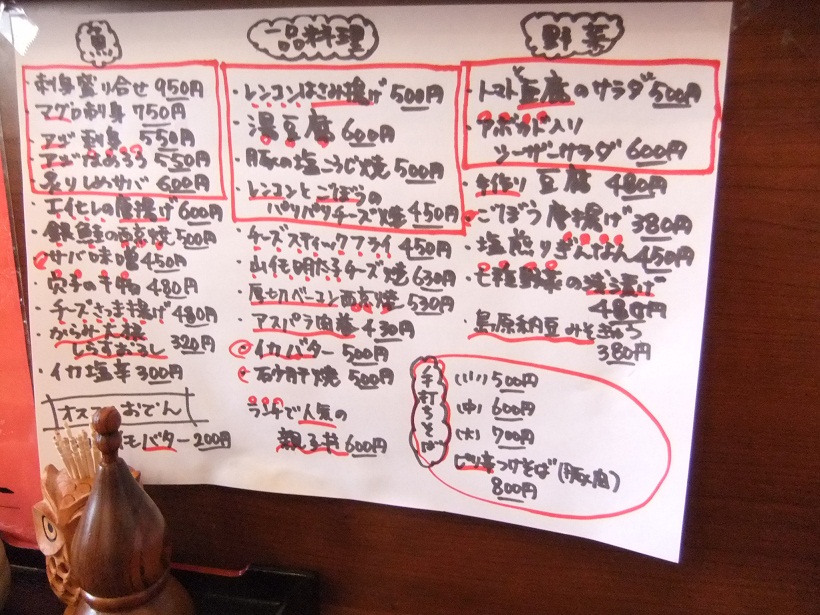 魚
刺身盛り合せ 950円
マグロ刺身 750円
アジ刺身 550円
アジなめろう 550円
炙りしめサバ 600円
・エイヒレの唐揚げ 600円
・銀鮭の西京焼 500円
・サバ味噌 450円
・穴子の干物 480円
・チーズさつま揚げ 480円
・からみ大根
しらすおろし 320円
・イカ塩辛 300円
オススメおでん
バター 200円
一品料理
・レンコンはさみ揚げ 500円
・湯豆腐 600円
・豚の塩こうじ焼 500円
・レンコンとごぼうの
パリパリチーズ焼 450円
・チーズスティックフライ 450円
・山イモ明太子チーズ焼 630円
・厚切ベーコン西京焼 530円
・アスパラ肉巻 430円
・イカバター 500円
・砂肝焼 500円
ランチで人気の
親子丼 600円
野菜
・トマトと豆腐のサラダ 500円
・アボカド入り
シーザーサラダ 600円
・手作り豆腐 480円
・ごぼう唐揚げ 380円
・塩煎りぎんなん 450円
・七種野菜の
480円
・島原納豆みそきゅう
380円
手打ちそば
(小) 500円
(中) 600円
(大) 700円
つけそば(豚肉)
800円